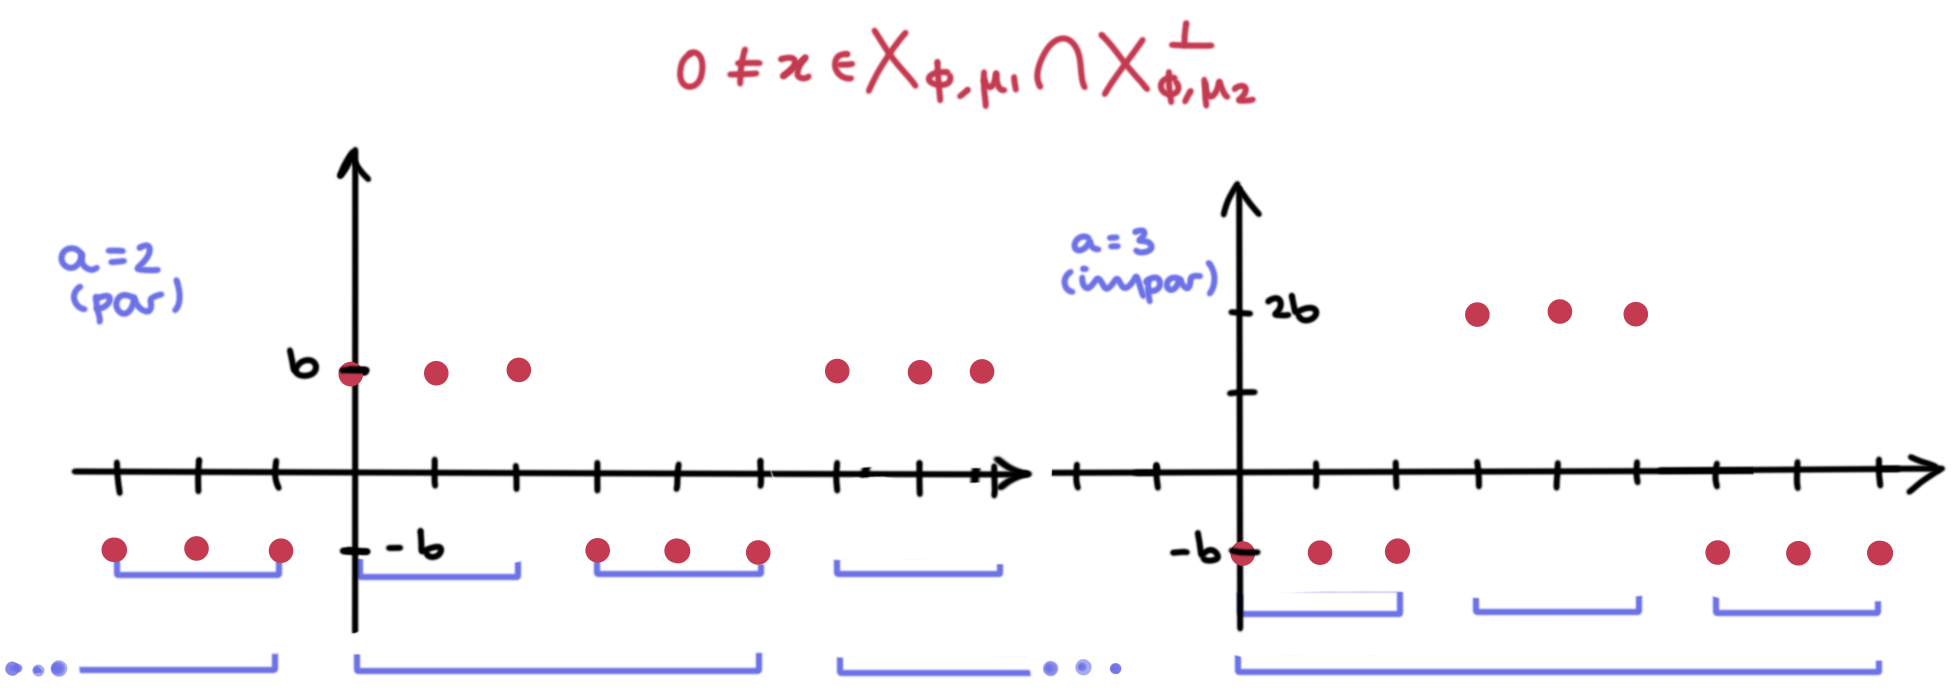 0 ≠ x ∈ X_{ϕ,μ1} ∩ X^⊥_{ϕ,μ2}
a = 2
(par)
b
-b
a = 3
(impar)
2b
-b